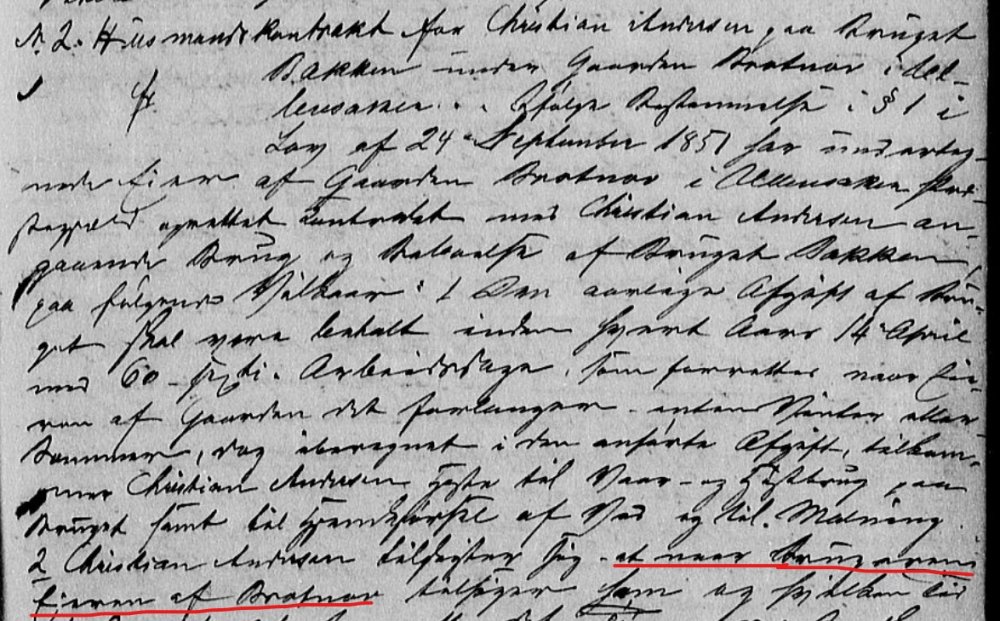 N. 2. Huusmandskontrakt for Christian Andersen paa Bruget
Bakken under Gaarden Brotnov i Ul-
lensaker. Ifølge Bestemmelse i § 1 i
Lov af 24 September 1851 har underteg-
nede Eier af Gaarden Brotnov i Ullensaker Præ-
stegjæld oprettet Kontrakt med Christian Andersen an-
gaaende Brug og Beboelse af Bruget Bakken,
paa følgende Vilkaar: 1 Den aarlige Afgift af Bru-
get skal være betalt inden hvert Aars 14 April
med 60 – sexti. Arbeidsdage, som forrettes naar Eie-
ren af Gaarden det forlanger – enten Vinter eller
Sommer, dog iberegnet i den anførte Afgift, tilkom-
mer Christian Andersen Heste til Vaar- og Høstbrug paa
Bruget samt til Hjemkjørsel af Ved og til Malning
2 Christian Andersen tilpligter sig – at naar Brugeren
Eieren af Brotnov tilsiger ham og hvilken Tid